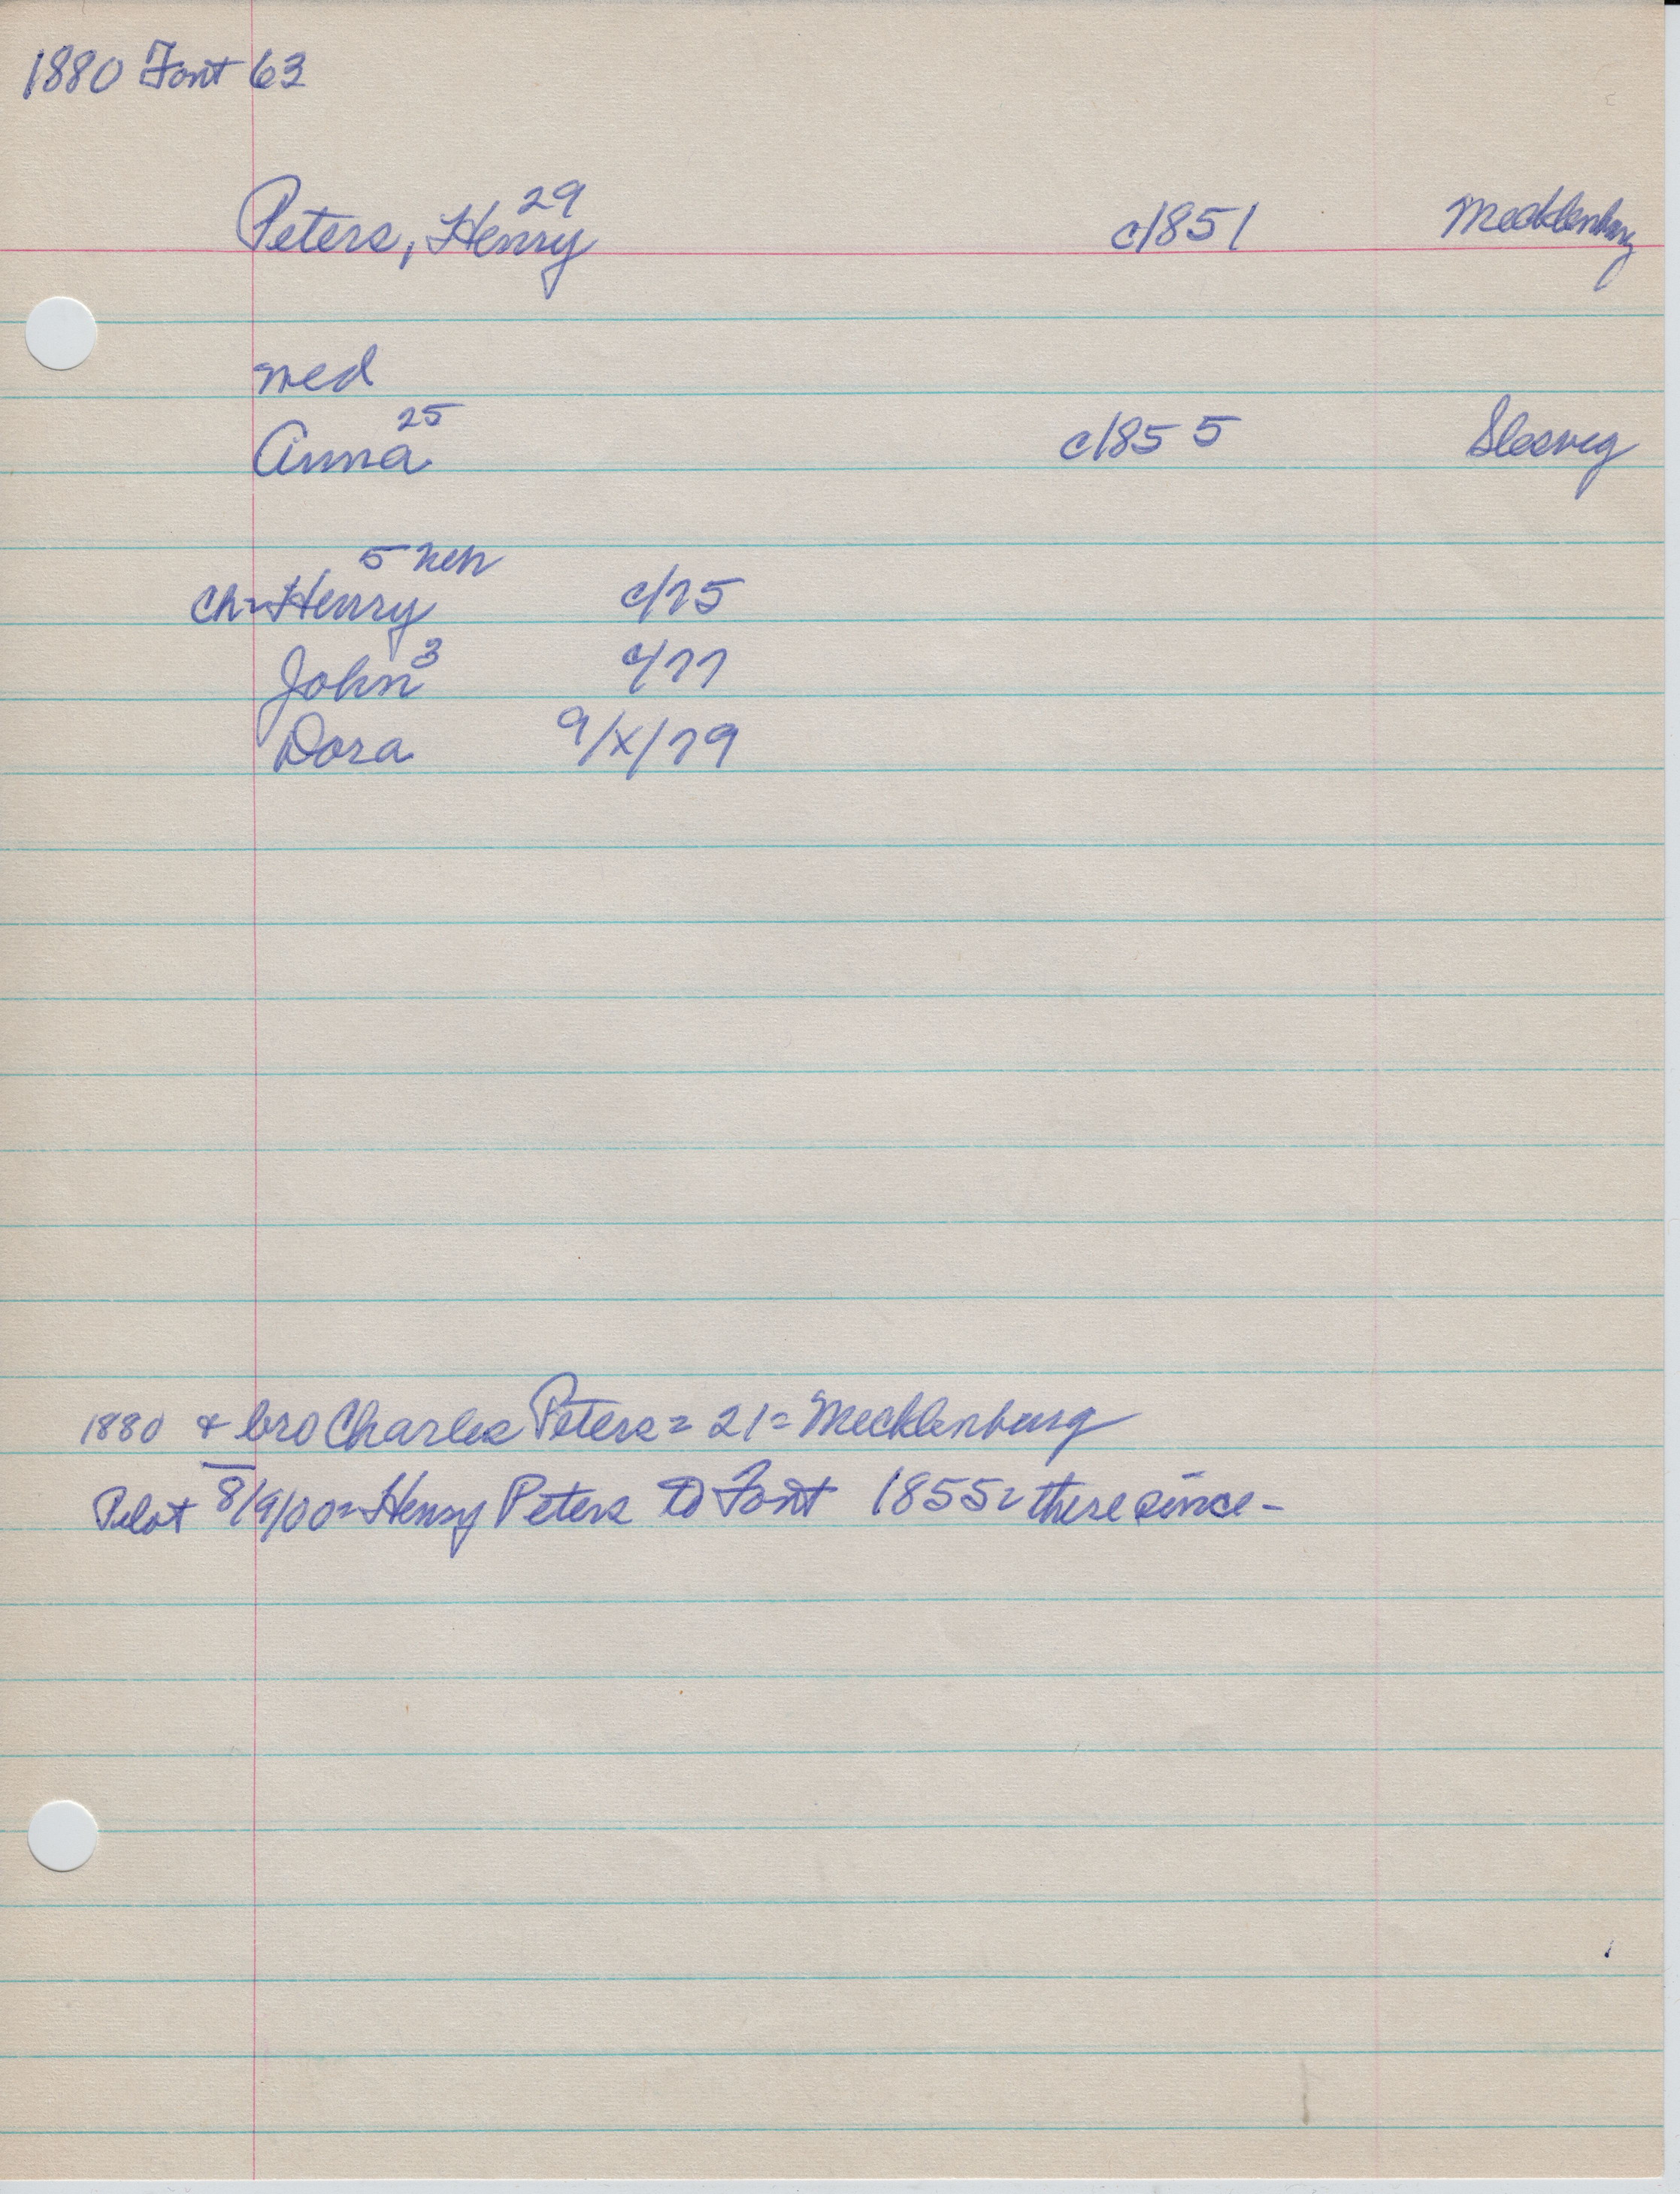 1880 Font 63
Peters, Henry 29 c1851 Mecklenburg
med
Anna 25 c1855 Slesvig
Ch= Henry 5 Neb c/75
John 3 c/77
Dora 9/X/79
1880 & bro Charles Peters = 21 = Mecklenburg
Pilot 8/9/00= Henry Peters to Font 1855= there since-